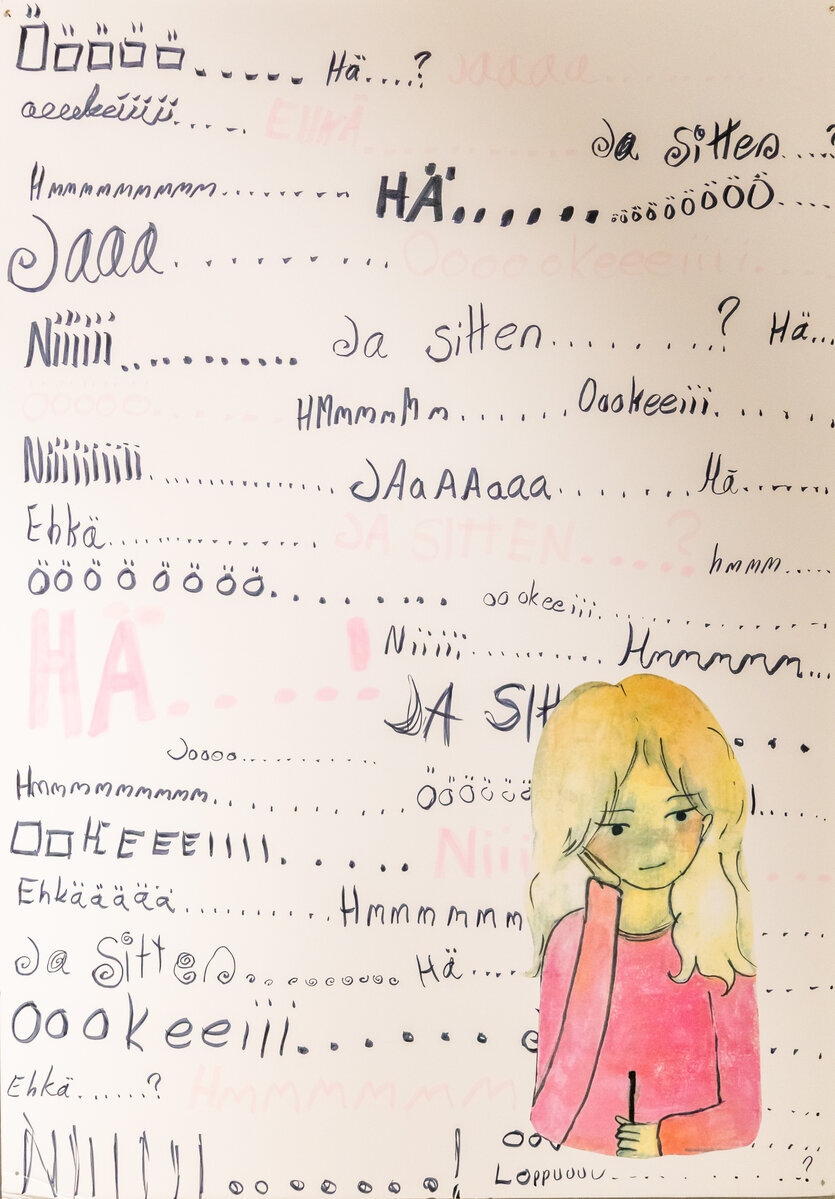 Ööööö..... Hä....? Jaaaa........
oookeiiii..... EHKÄ...........
Ja sitten....?
Hmmmmmmmmm......... HÄ....... ööööööööÖÖ.....
Jaaa........ Ooookeeeiiii.....
Niiiiii........... Ja sitten........? Hä...
Ooooo.....
HMmmmMm...... Oookeeiii.......
Niiiiiiiii.................. JAaAAaaa....... Hä........
Ehkä................. JA SITTEN.....? hmmm.....
öööööööö....... ookeeiii................
HÄ.....! Niiiii........... Hmmmmmm...
JA SIT
Joooo............
Hmmmmmmmmmm.......... Öööööö
OOKEEEIIII..... Niii
Ehkäääää............ Hmmmmmm
Ja sitten........... Hä.....
Oookeeiii.......
Ehkä......? Hmmmmmmm
NIIIIII.......!
Loppuuuu.............?